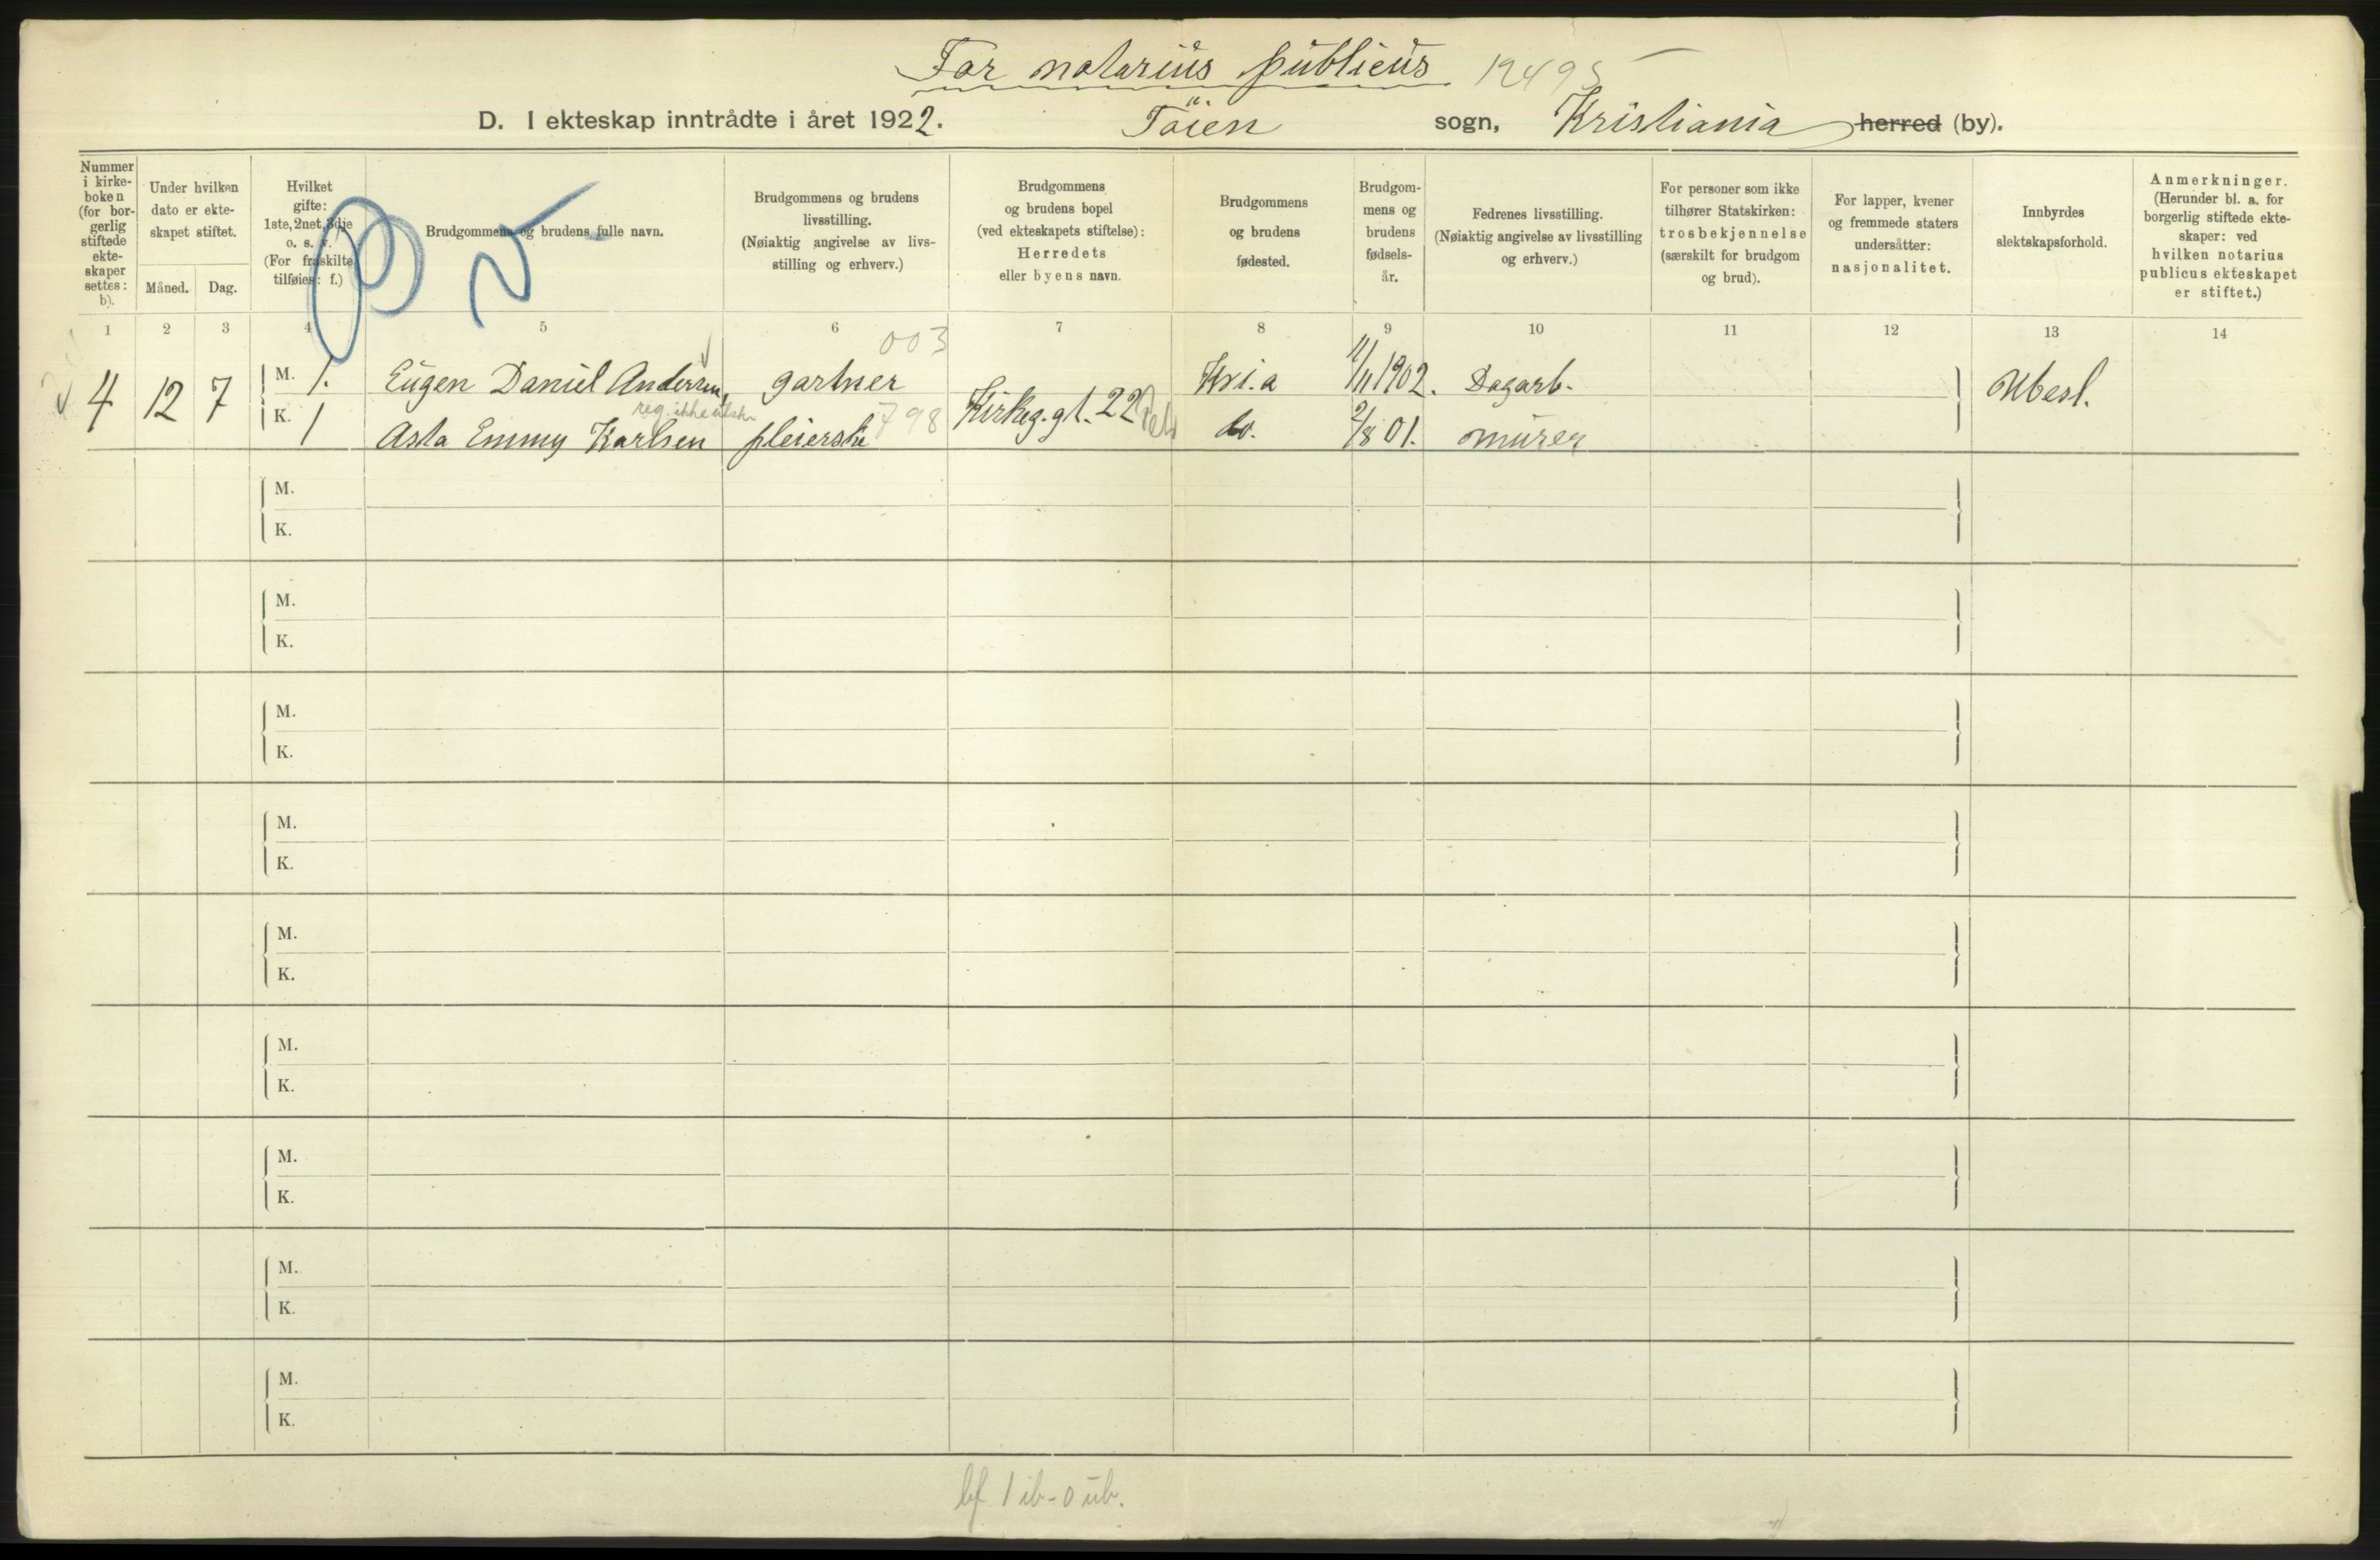 For notarius publicus 12495
D. I ekteskap inntrådte i året 1922. Töien sogn, Kristiania herred (by).
Nummer i kirkeboken (for borgerlig stiftede ekteskaper settes: b).
Under hvilken dato er ekteskapet stiftet.
Måned. Dag.
Hvilket gifte: 1ste, 2net, 3dje o. s. v. (For fraskilte tilføies: f.)
Brudgommens og brudens fulle navn.
Brudgommens og brudens livsstilling. (Nøiaktig angivelse av livsstilling og erhverv.)
Brudgommens og brudens bopel (ved ekteskapets stiftelse): Herredets eller byens navn.
Brudgommens og brudens fødested.
Brudgommens og brudens fødselsår.
Fedrenes livsstilling. (Nøiaktig angivelse av livsstilling og erhverv.)
For personer som ikke tilhører Statskirken: trosbekjennelse (særskilt for brudgom og brud).
For lapper, kvener og fremmede staters undersåtter: nasjonalitet.
Innbyrdes slektskapsforhold.
Anmerkninger. (Herunder bl. a. for borgerlig stiftede ekteskaper: ved hvilken notarius publicus ekteskapet er stiftet.)
1 2 3 4 5 6 7 8 9 10 11 12 13 14
003
4 12 7 M. 1. Eugen Daniel Andersen, gartner Kirkeg.gt. 22 Kri.a 11/11 1902. Dagarb. Ubesl.
reg. ikke
K. 1 Asta Emmy Karlsen pleierske 798 do. 2/8 01. murer
M.
K.
M.
K.
M.
K.
M.
K.
M.
K.
M.
K.
M.
K.
M.
K.
M.
K.
bf 1 ib - 0 ub.